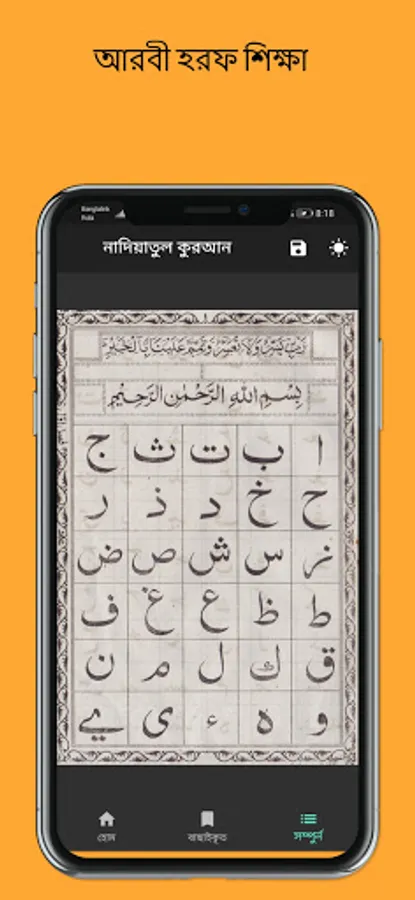 আরবী হরফ শিক্ষা
Banglalink
8:18
নাদিয়াতুল কুরআন
رَبِّ يَسِّرْ وَلَا تُعَسِّرْ وَتَمِّمْ عَلَيْنَا بِالْخَيْرِ
بِسْمِ اللّٰهِ الرَّحْمٰنِ الرَّحِيْمِ
ا ب ت ث ج
ح خ د ذ ر
ز س ش ص ض
ط ظ ع غ ف
ق ك ل م ن
و ه ء ي ے
হোম
বাছাইকৃত
সম্পুর্ন